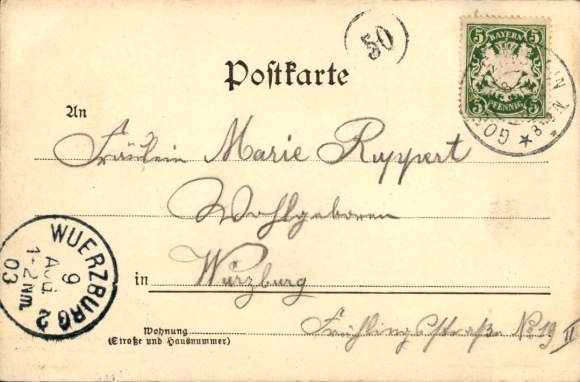 50
BAYERN
5 5
5 PFENNIG 5
8-9 N.
Postkarte
An
Fräulein Marie Ruppert
Wohlgeboren
in Würzburg
Wohnung
(Straße und Hausnummer)
Frühlingsstraße No 19 II
WUERZBURG 2
9
AUG.
1-2 Nm.
03